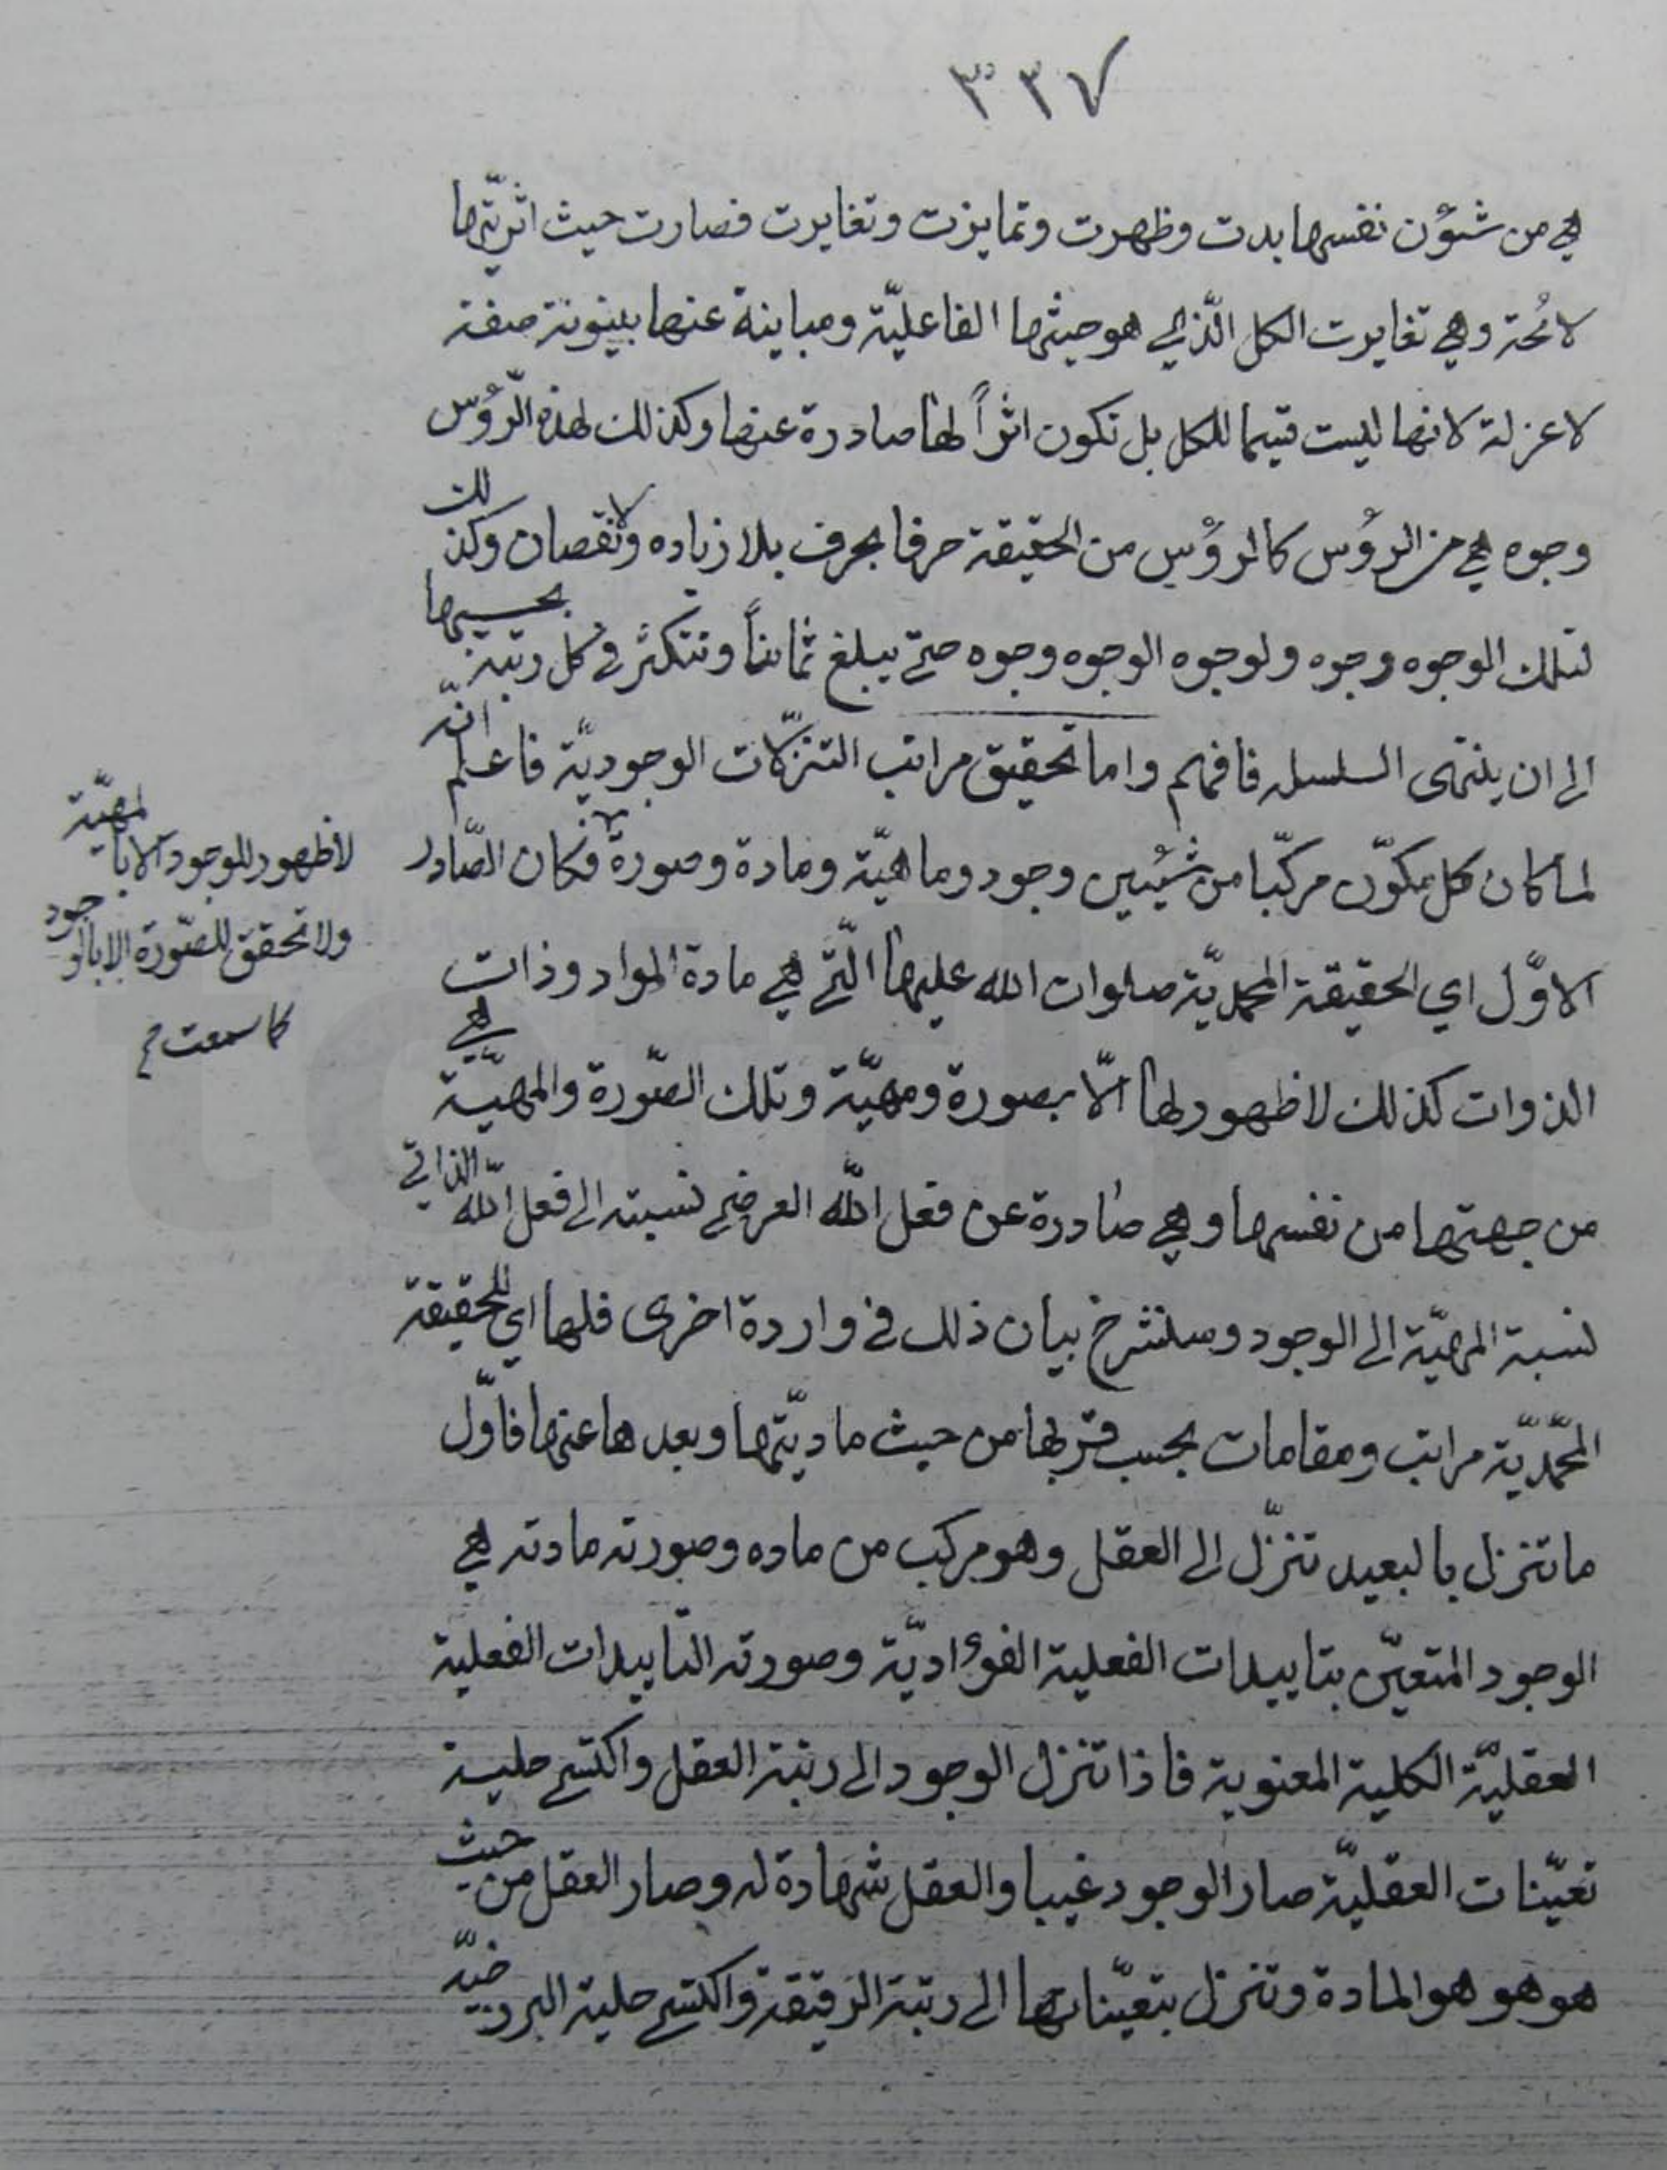 ٣٢٧
هي من شئون نفسها بدت وظهرت وتمايزت وتغايرت فصارت حيث اثريّتها
لائحة وهي تغايرت الكل الّذي هو حيثها الفاعليّة ومباينة عنها بينونة صفة
لا عزلة لانها ليست قسيما للكل بل تكون اثراً لها صادرة عنها وكذلك لهذه الرّؤس
وجوه هي من الرؤس كالرؤس من الحقيقة حرفا بحرف بلا زياده ولا نقصان وكذلك
لتلك الوجوه وجوه ولوجوه الوجوه وجوه حتّى يبلغ ثامناً وتتكثّر في كل رتبة بحسبها
الى ان ينتهى السلسله فافهم واما تحقيق مراتب التنزّلات الوجوديّة فاعلم انّه
لما كان كل مكوّن مركّبا من شيئين وجود وماهيّة ومادة وصورة فكان الصّادر
لا ظهور للوجود الا بالمهيّة
ولا تحقق للصّورة الا بالوجود
كما سمعت م
الاوّل اي الحقيقة المحمديّة صلوات الله عليها الّتي هي مادة المواد وذات
الذوات كذلك لا ظهور لها الّا بصورة ومهيّة وتلك الصّورة والمهيّة هي
من جهتها من نفسها وهي صادرة عن فعل اللّه العرضي نسبته الى فعل اللّه الذاتي
نسبة المهيّة الى الوجود وسنشرح بيان ذلك في واردة اخرى فلها اي للحقيقة
المحمّديّة مراتب ومقامات بحسب قربها من حيث ماديّتها وبعدها عنها فاوّل
ما تنزل بالبعيد تنزّل الى العقل وهو مركب من ماده وصورته مادته هي
الوجود المتعيّن بتاييدات الفعلية الفؤاديّة وصورته التاييدات الفعلية
العقليّة الكلية المعنوية فاذا تنزل الوجود الى رتبة العقل واكتسى حلية
تعيّنات العقليّة صار الوجود غيبا والعقل شهادة له وصار العقل من حيث
هو هو هو المادة وتنزل بتعيّناتها الى رتبة الرقيقة واكتسى حلية البرزخيّة